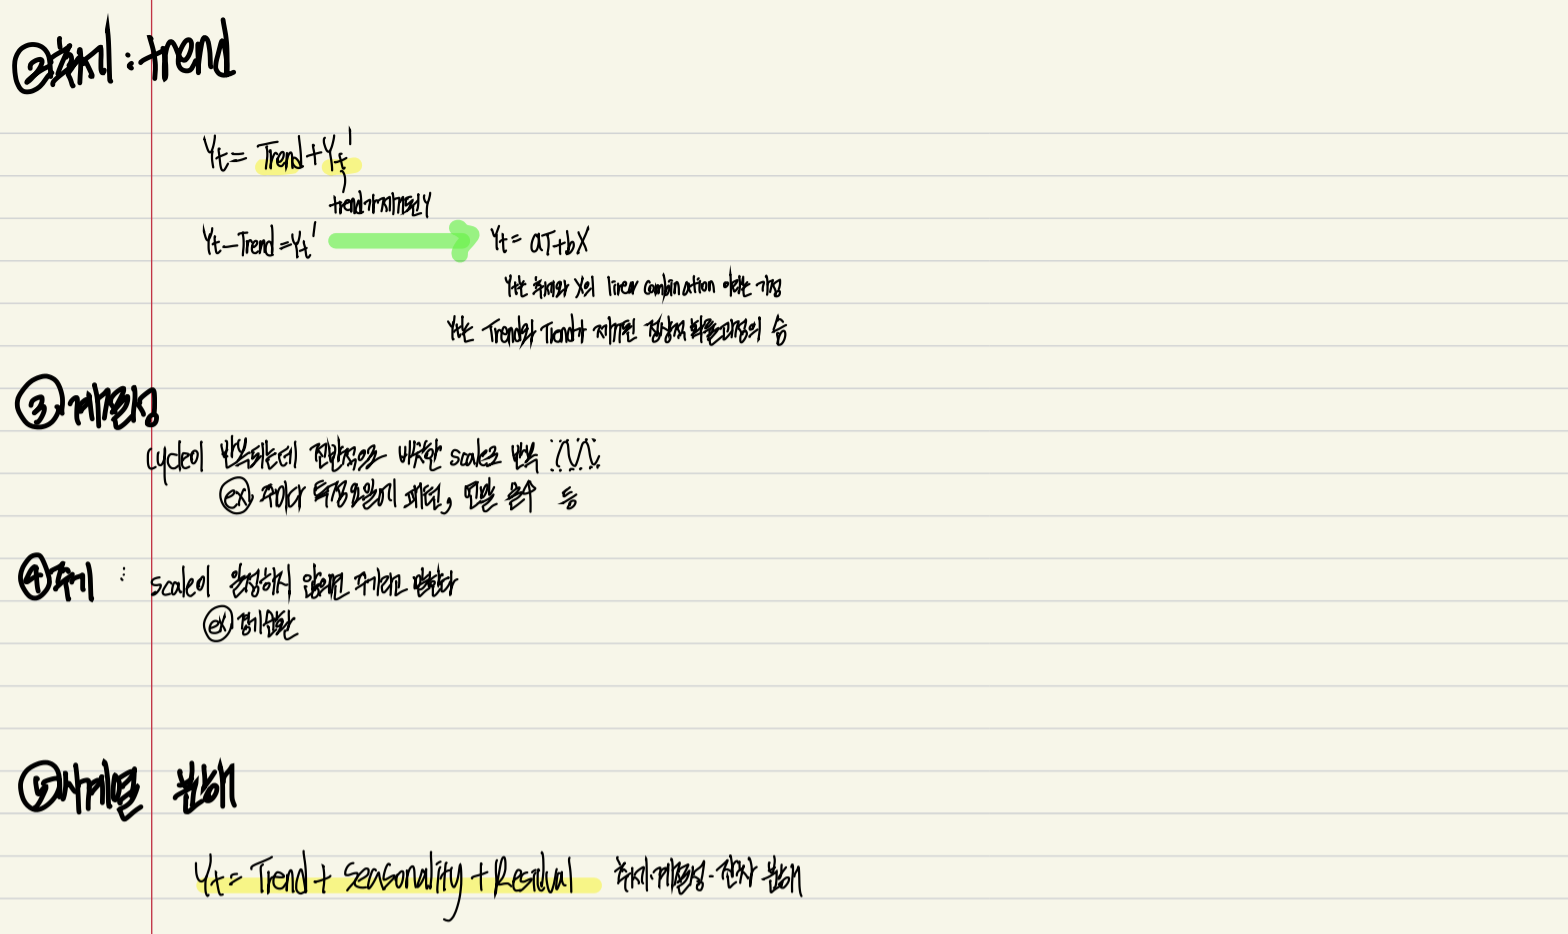 ② 추세 : trend
Yt = Trend + Yt'
trend가 제거된 Y
Yt - Trend = Yt' Yt = aT+bX
Yt는 추세와 X의 linear combination 이라는 가정
Yt는 Trend와 Trend가 제거된 정상적 확률과정의 합
③ 계절성
cycle이 반복되는데 전반적으로 비슷한 scale로 반복
ex) 주마다 특정요일에 패턴, 연말 등
④ 주기 : scale이 일정하지 않으면 주기라고 말한다
ex) 경기순환
⑤ 시계열 분해
Yt = Trend + Seasonality + Residual 추세·계절성·잔차 분해